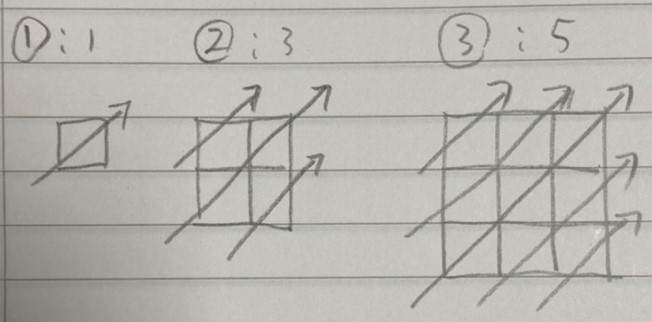 ①:1 ②:3 ③:5